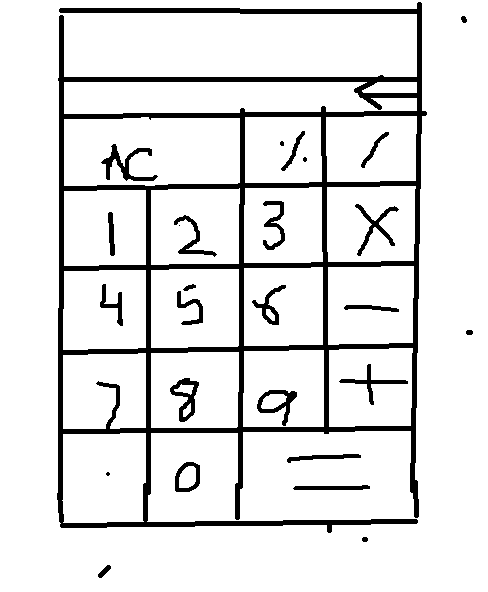 ←
AC % /
1 2 3 X
4 5 6 —
7 8 9 +
. 0 =